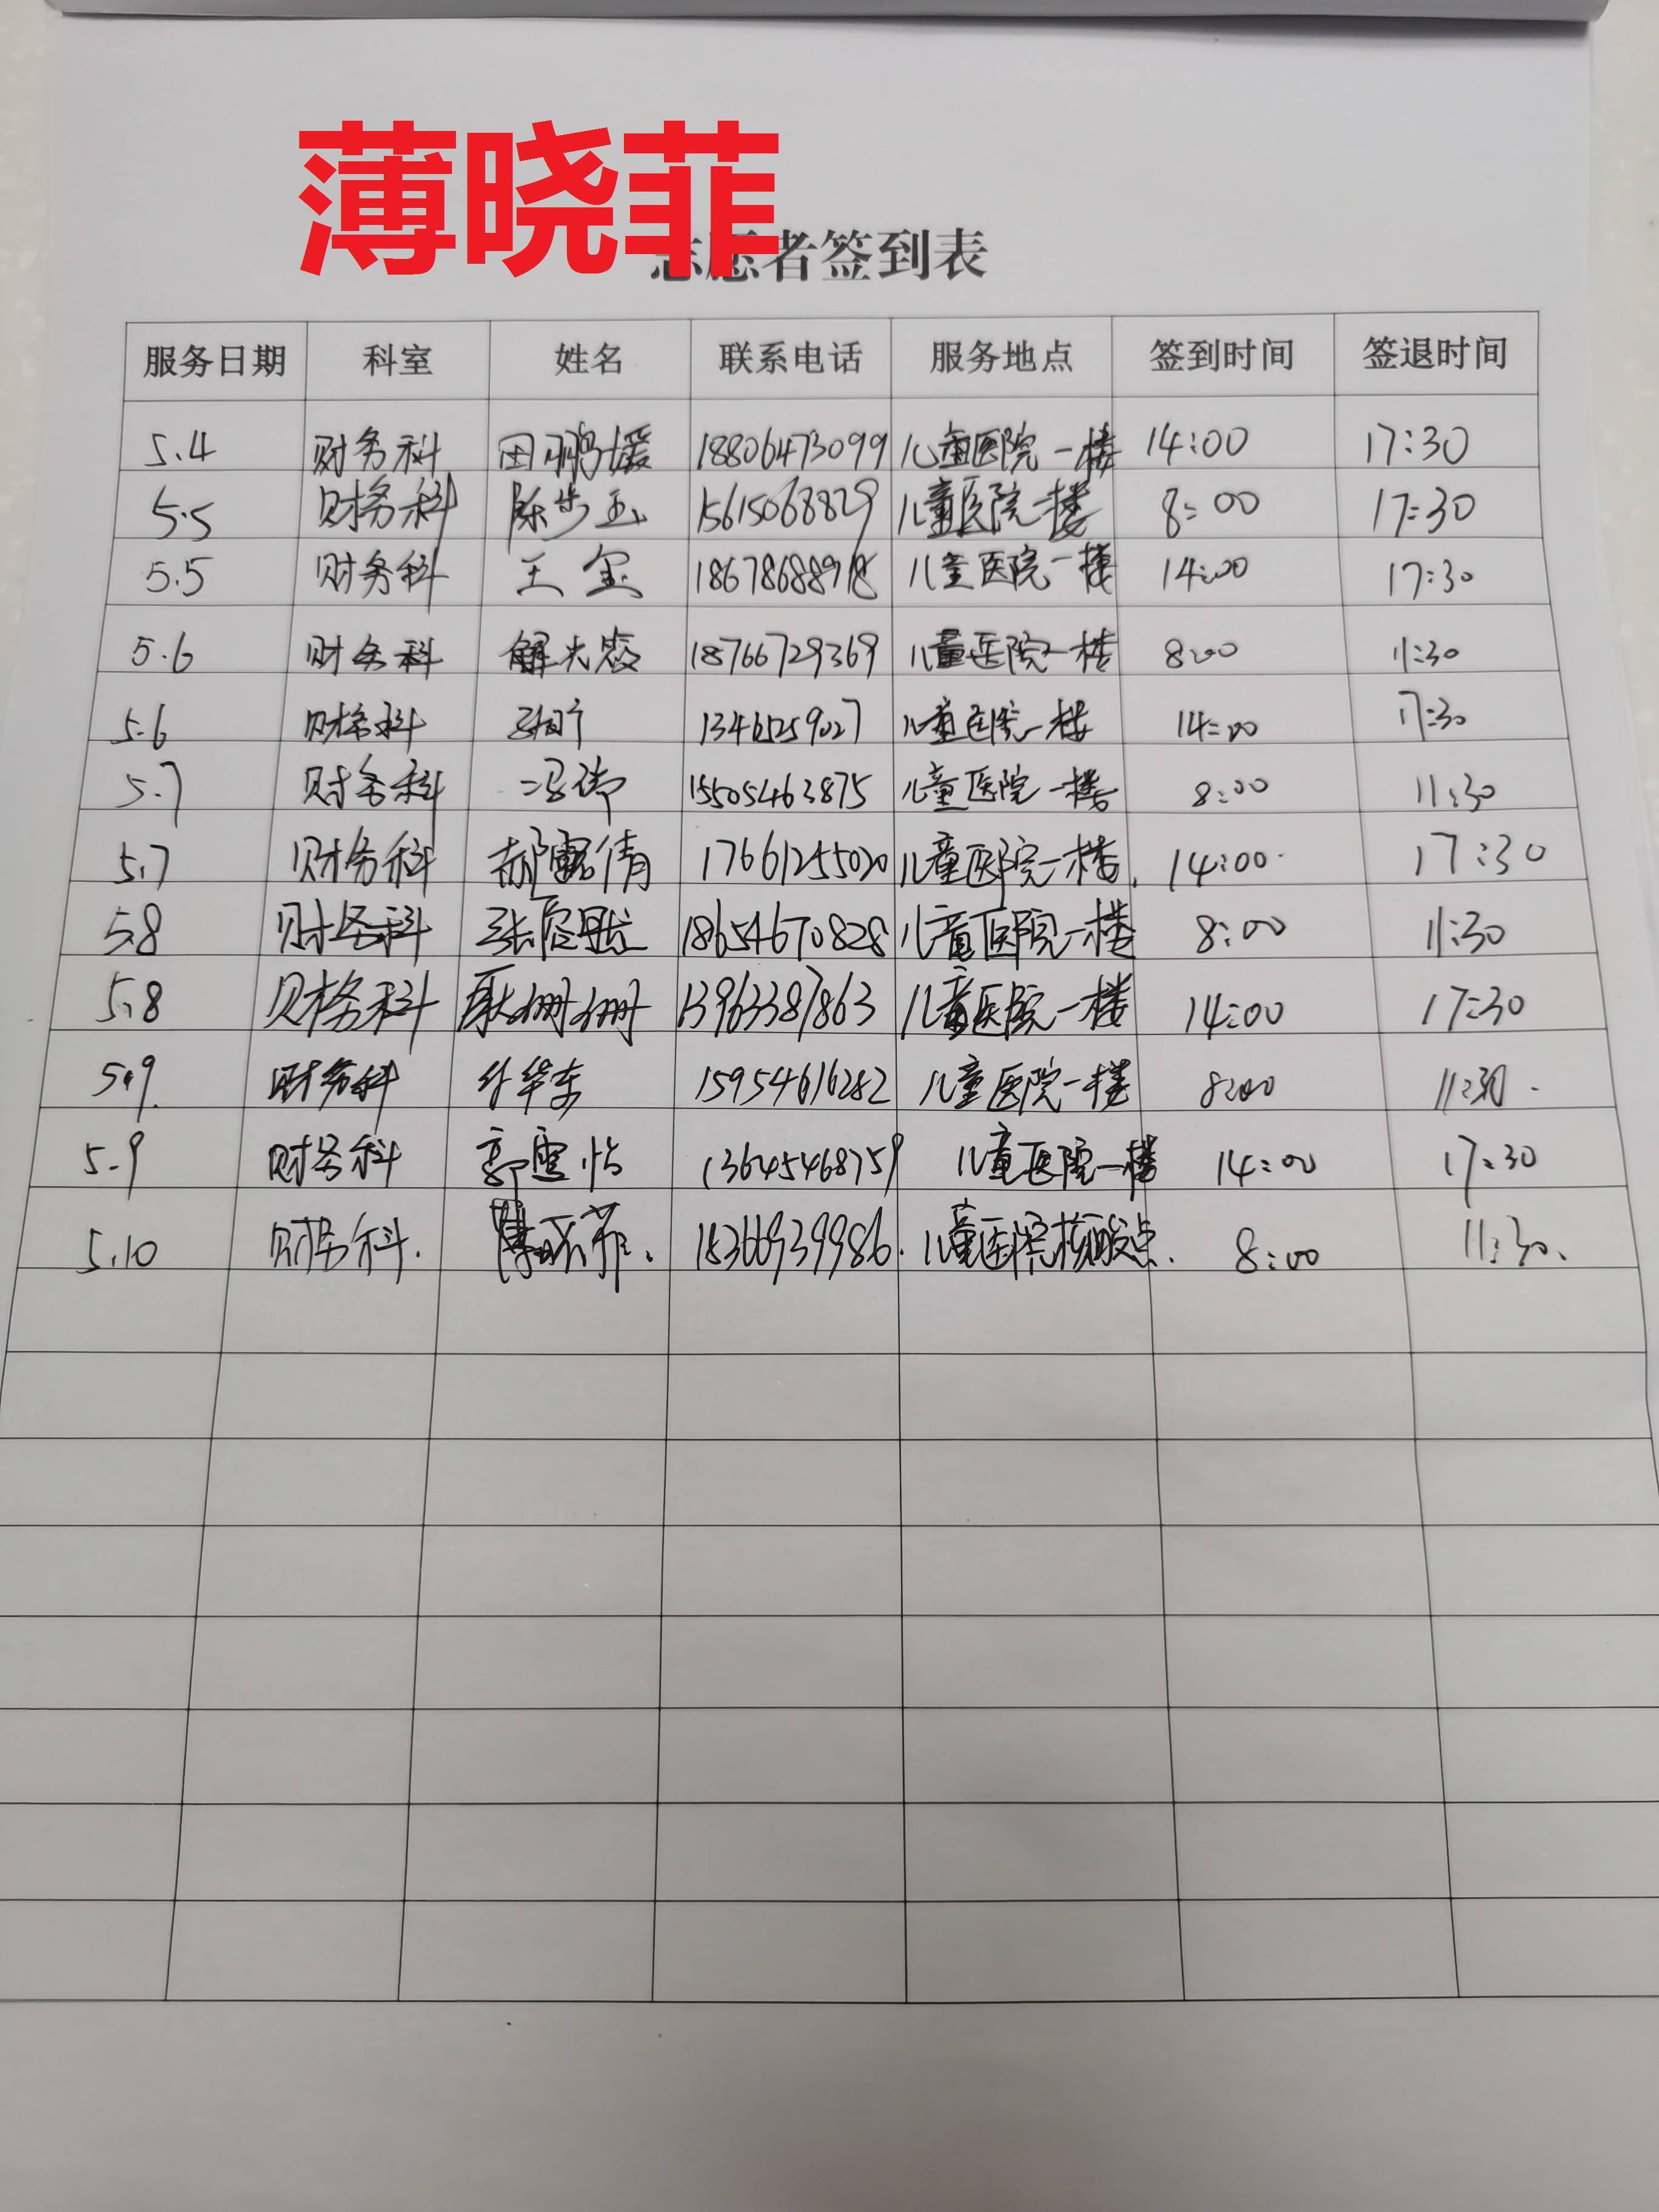 薄晓菲
志愿者签到表
服务日期 科室 姓名 联系电话 服务地点 签到时间 签退时间
5.4 财务科 田鹏媛 18806473099 儿童医院一楼 14:00 17:30
5.5 财务科 陈步玉 15615068829 儿童医院一楼 8:00 17:30
5.5 财务科 王玺 18678688918 儿童医院一楼 14:00 17:30
5.6 财务科 18766729369 儿童医院一楼 8:00 11:30
5.6 财务科 13465259027 儿童医院一楼 14:00 17:30
5.7 财务科 15505463875 儿童医院一楼 8:00 11:30
5.7 财务科 郝露倩 17661255020 儿童医院一楼 14:00 17:30
5.8 财务科 18654670828 儿童医院一楼 8:00 11:30
5.8 财务科 耿姗姗 13963387863 儿童医院一楼 14:00 17:30
5.9 财务科 15954616282 儿童医院一楼 8:00 11:30
5.9 财务科 郭雪怡 13645468759 儿童医院一楼 14:00 17:30
5.10 财务科. 薄晓菲. 18366939986. 儿童医院核酸点. 8:00 11:30.